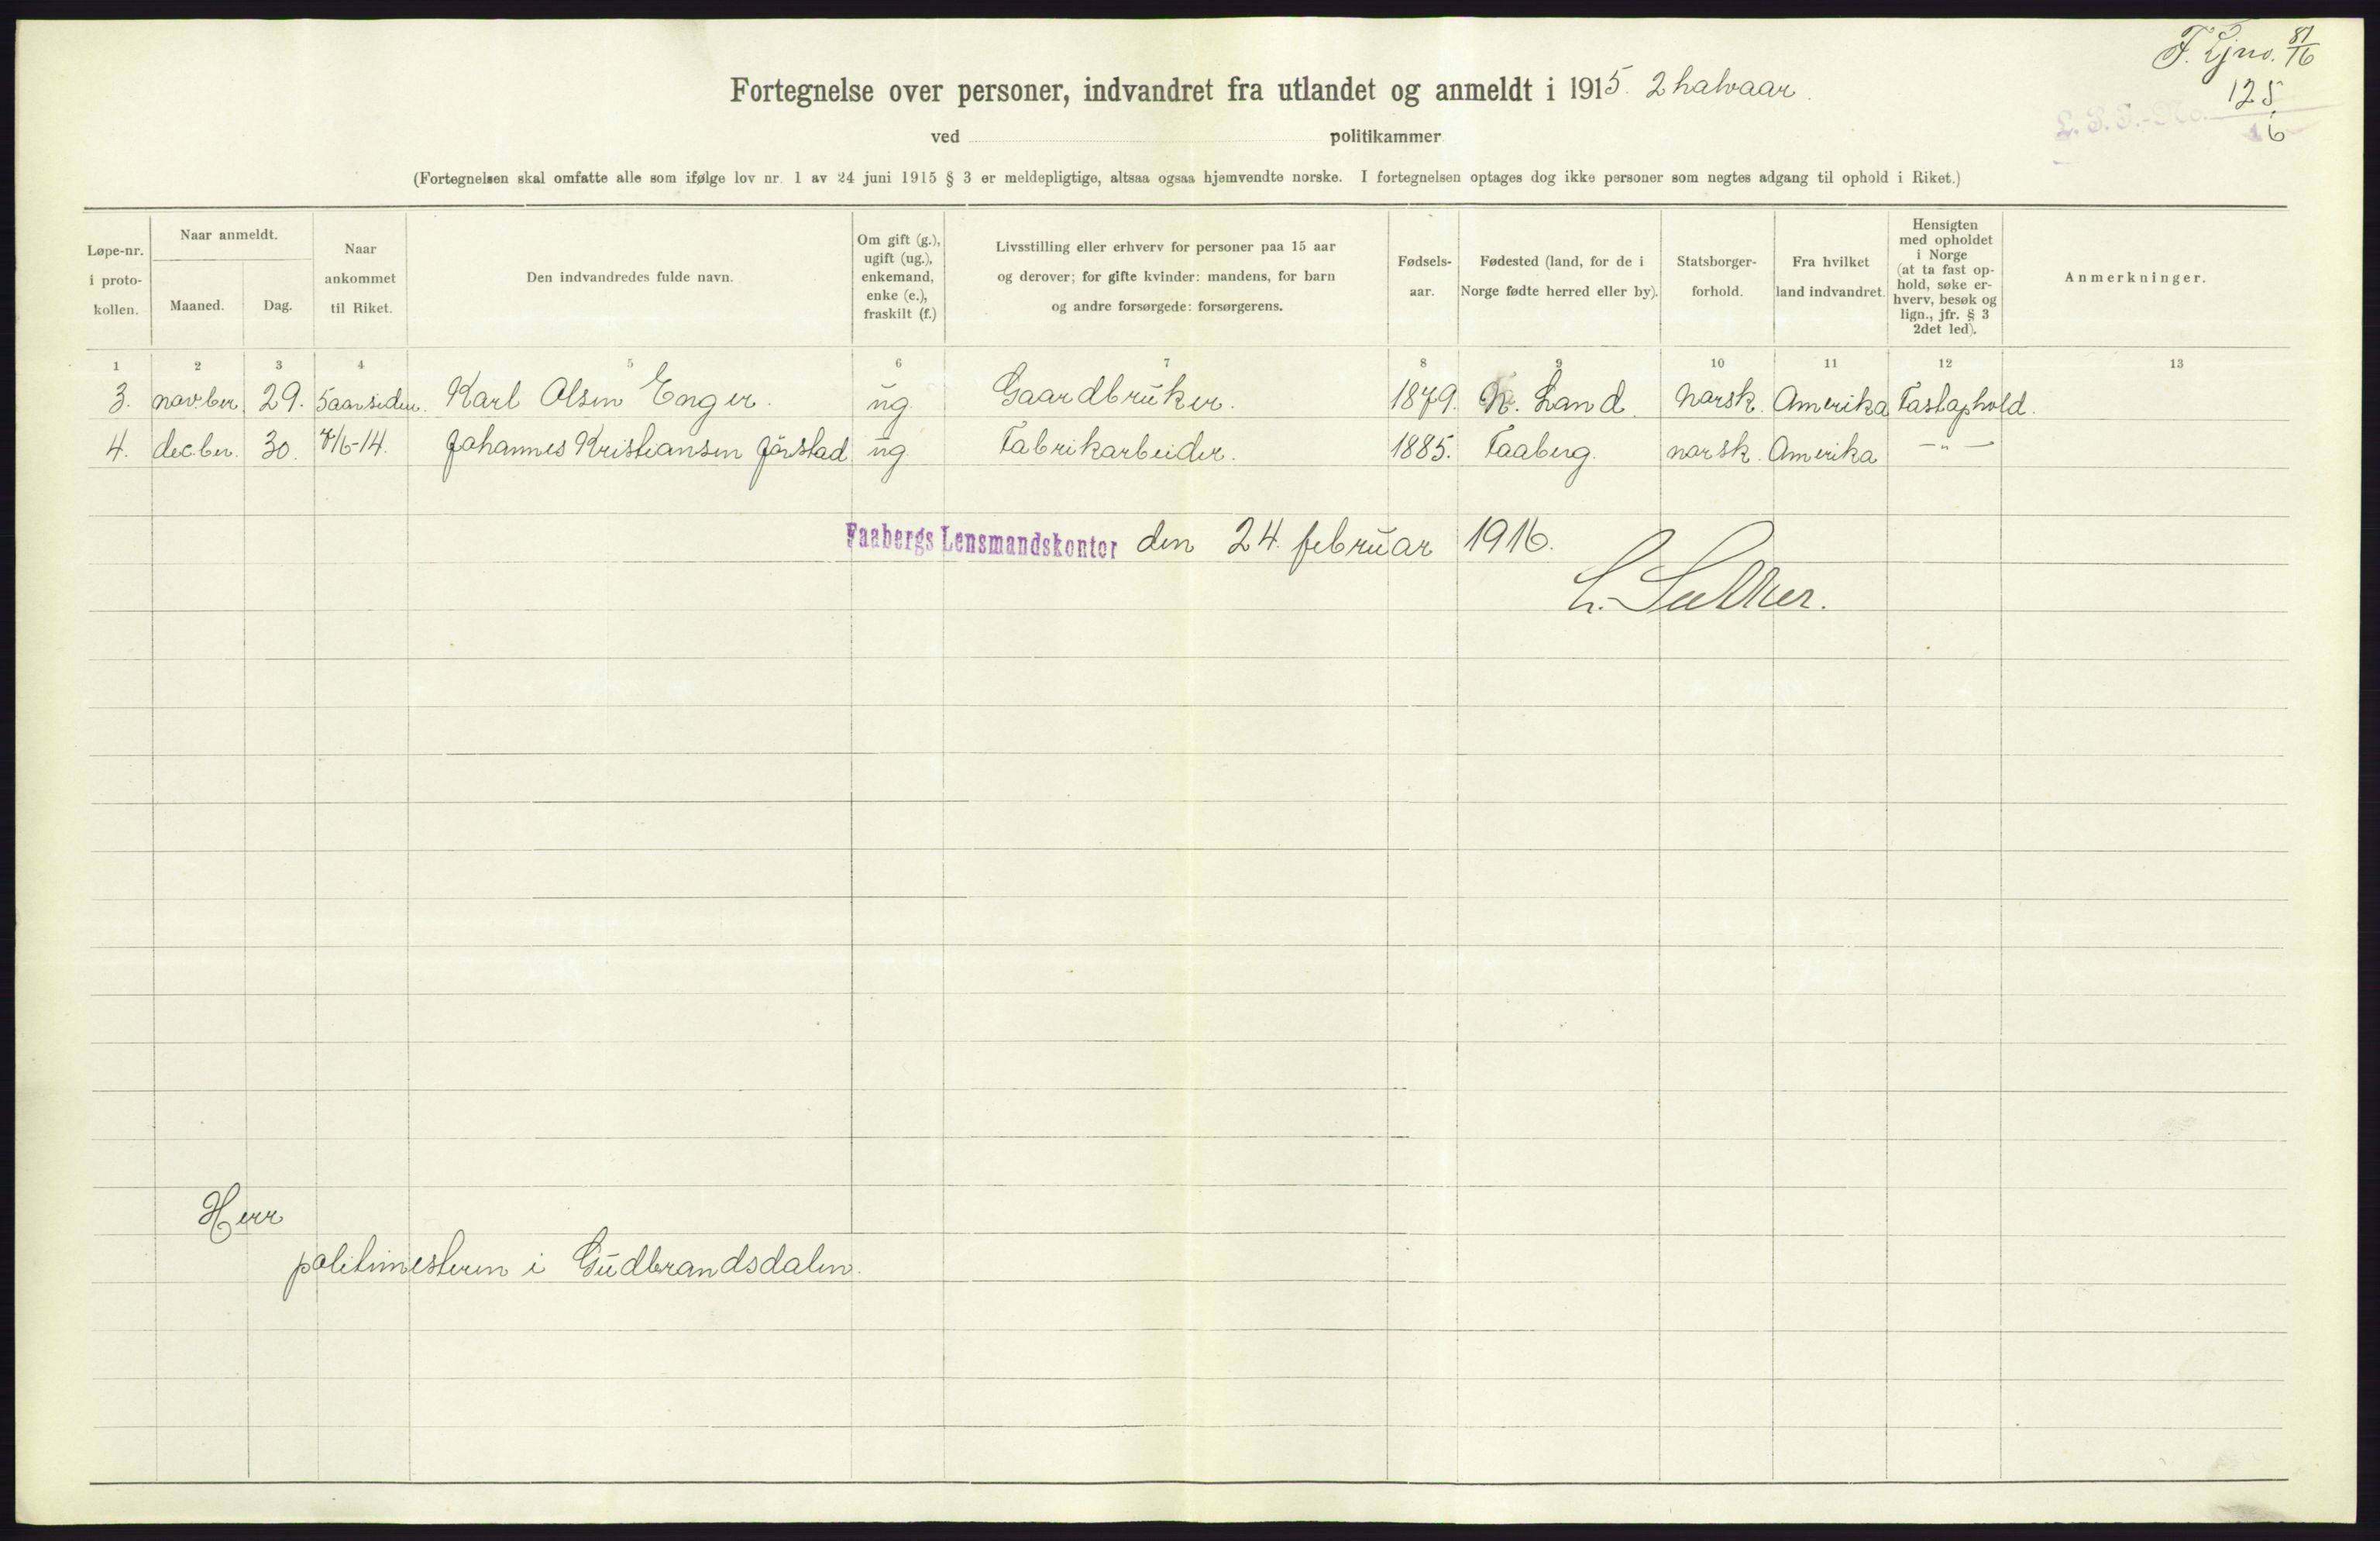 F. Ljno. 81/16
Fortegnelse over personer, indvandret fra utlandet og anmeldt i 1915. 2 halvaar.
L. S. J.-No. 125/16
ved politikammer
(Fortegnelsen skal omfatte alle som ifølge lov nr. 1 av 24 juni 1915 § 3 er meldepligtige, altsaa ogsaa hjemvendte norske. I fortegnelsen optages dog ikke personer som negtes adgang til ophold i Riket.)
Løpe-nr. i proto-kollen.
Naar anmeldt.
Maaned. Dag.
Naar ankommet til Riket.
Den indvandredes fulde navn.
Om gift (g.), ugift (ug.), enkemand, enke (e.), fraskilt (f.)
Livsstilling eller erhverv for personer paa 15 aar og derover; for gifte kvinder: mandens, for barn og andre forsørgede: forsørgerens.
Fødsels-aar.
Fødested (land, for de i Norge fødte herred eller by).
Statsborger-forhold.
Fra hvilket land indvandret.
Hensigten med opholdet i Norge (at ta fast op-hold, søke er-hverv, besøk og lign., jfr. § 3 2det led).
Anmerkninger.
1 2 3 4 5 6 7 8 9 10 11 12 13
3. novber. 29. 5 aar siden. Karl Olsen Enger. ug. Gaardbruker. 1879. N. Land. Norsk. Amerika Fastophold.
4. decber. 30. 7/6-14. Johannes Kristiansen Jørstad ug Fabrikarbeider. 1885. Faaberg. norsk. Amerika —"—
Faabergs Lensmandskontor den 24. februar 1916.
Herr
politimesteren i Gudbrandsdalen.